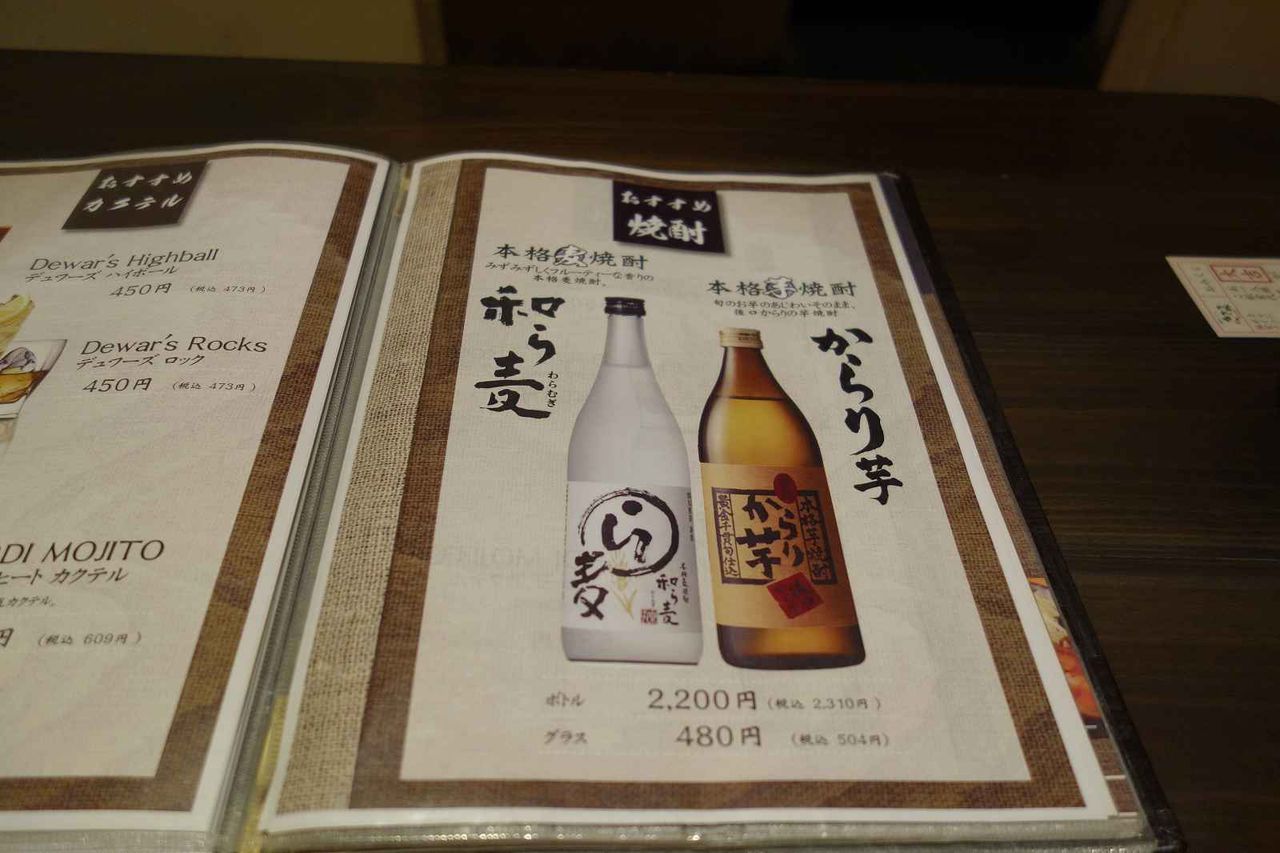 おすすめ
カクテル
Dewar's Highball
デュワーズ ハイボール
450円 (税込 473円)
Dewar's Rocks
デュワーズ ロック
450円 (税込 473円)
DI MOJITO
ヒート カクテル
カクテル。
円 (税込 609円)
おすすめ
焼酎
本格麦焼酎
みずみずしくフルーティーな香りの
本格麦焼酎。
和ら麦
わらむぎ
本格芋焼酎
旬のお芋のあじわいそのまま、
後口からりの芋焼酎
からり芋
ら麦
和ら麦
本格芋焼酎
からり芋
黄金千貫旬仕込
ボトル 2,200円 (税込 2,310円)
グラス 480円 (税込 504円)